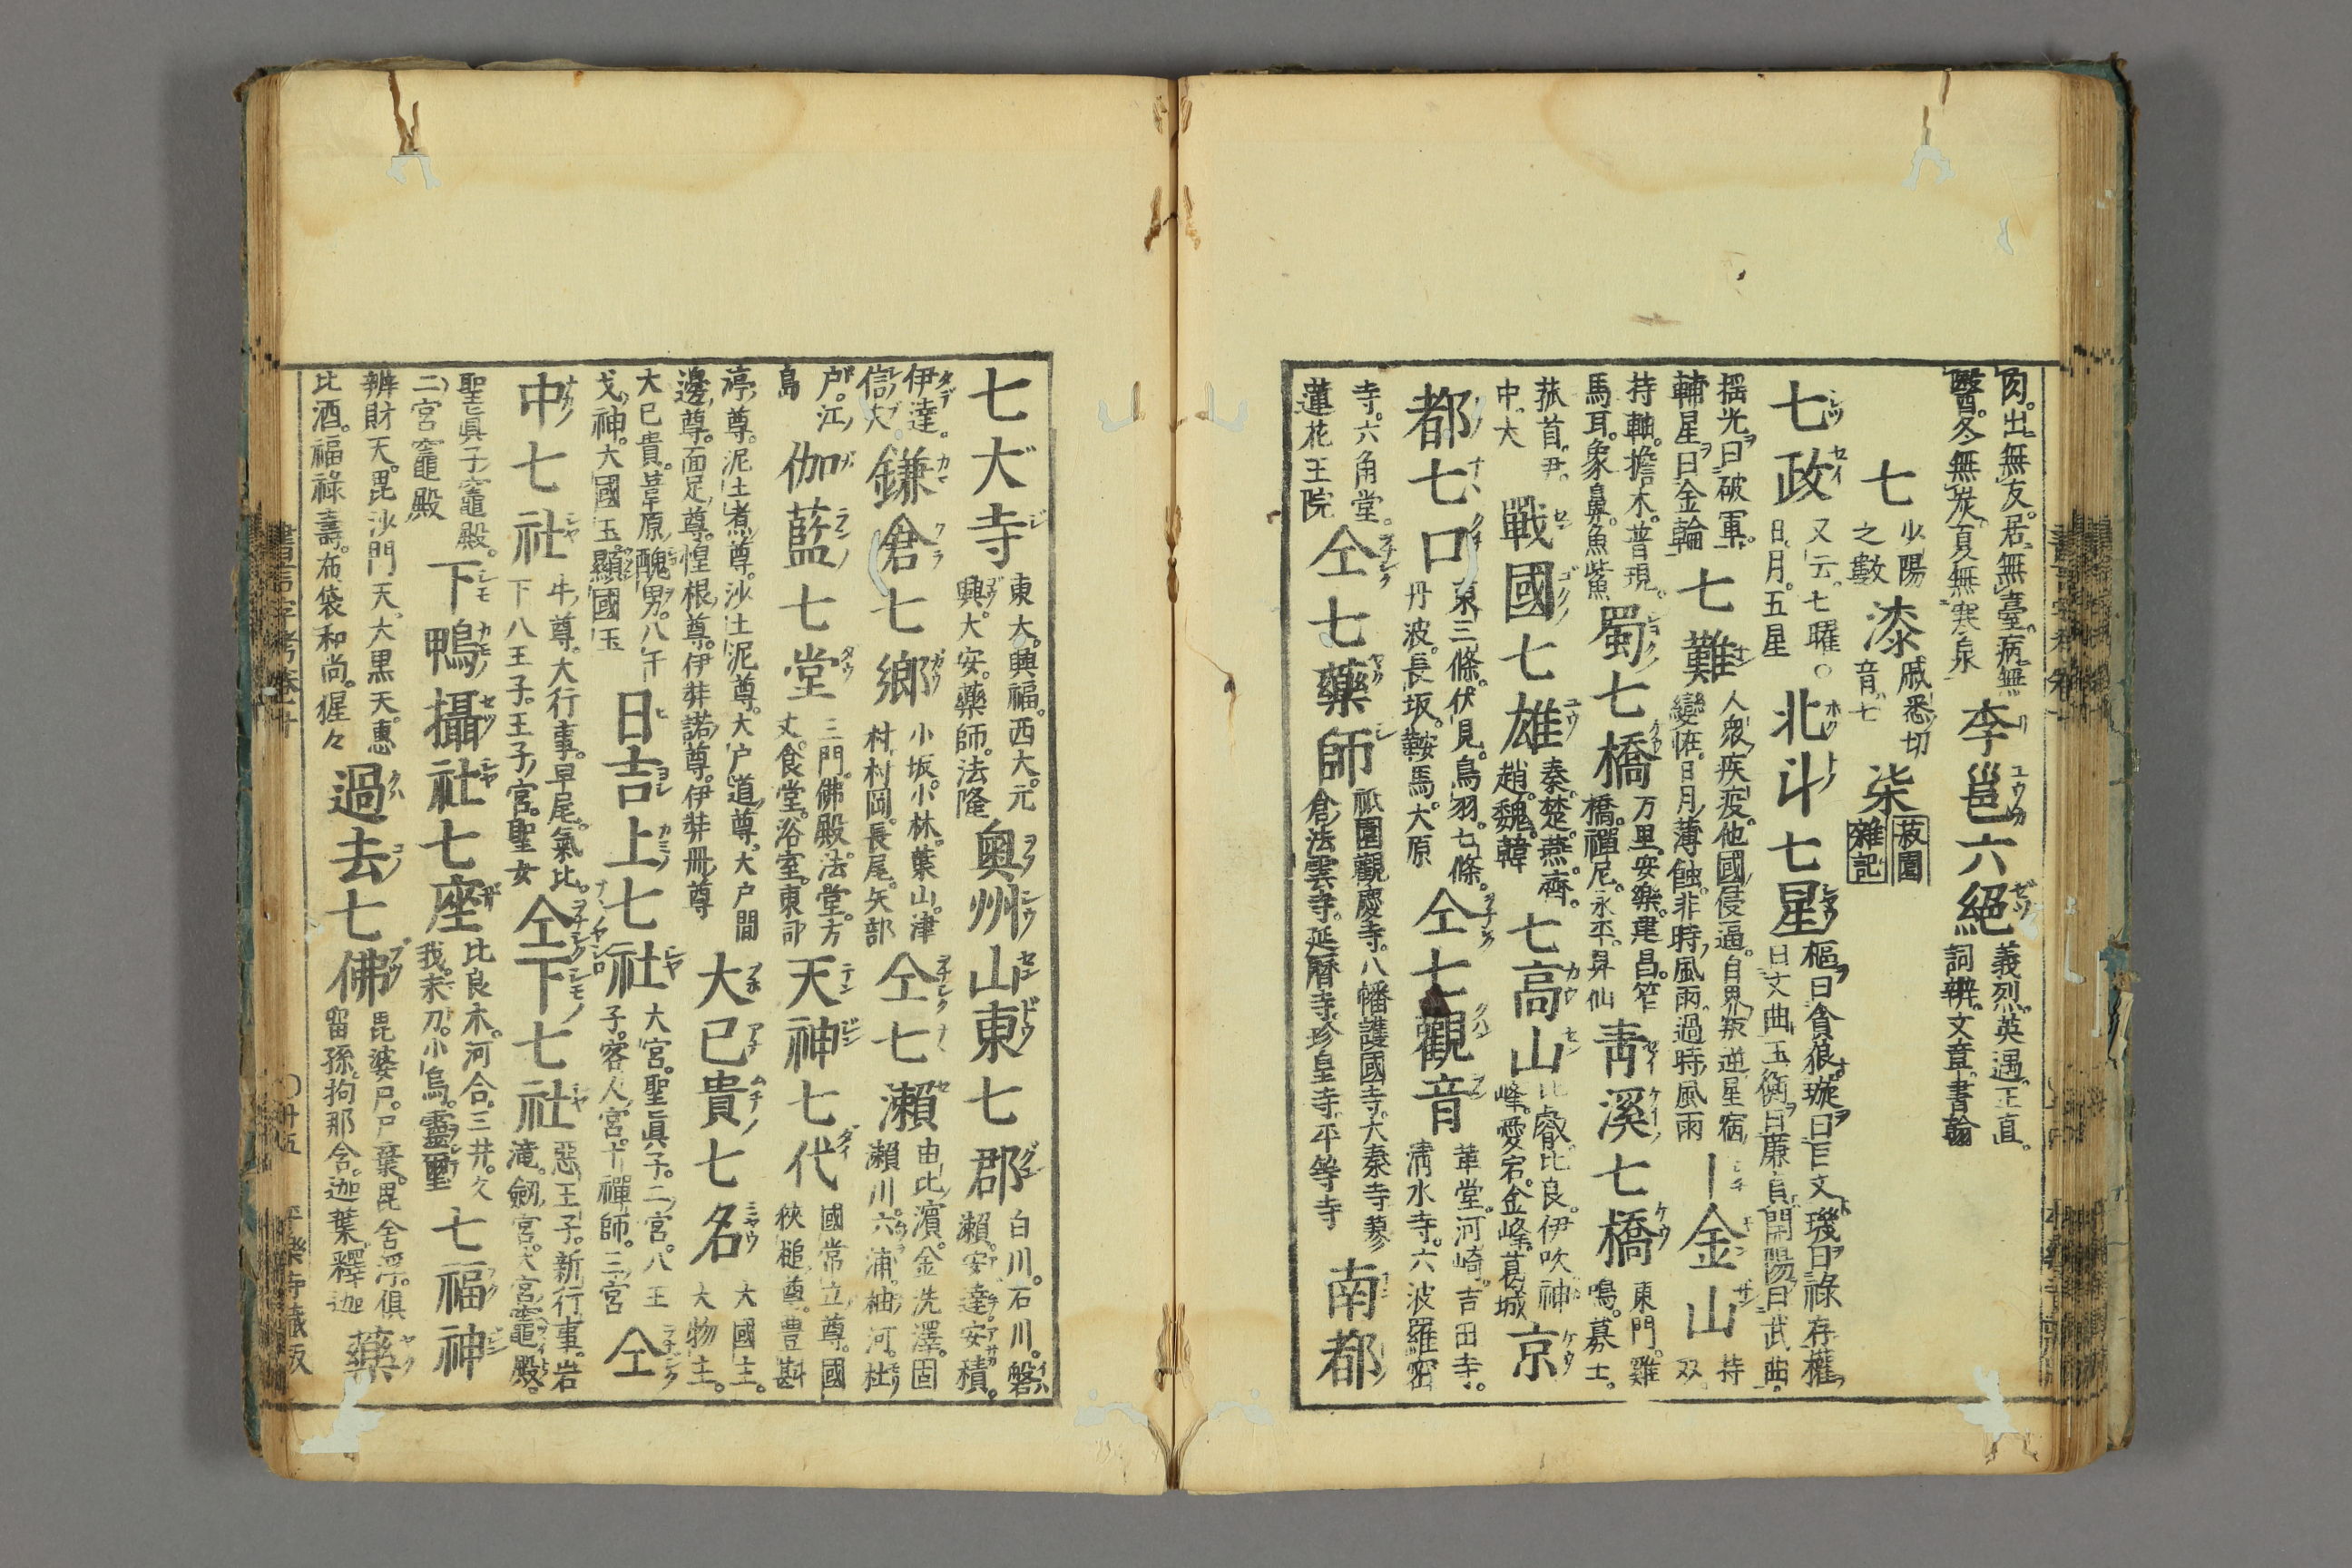 肉。出無友。居無臺。病無
醫。冬無炭。夏無寒泉
李邕六絕
義烈。英遇。正直。
詞辨。文章。書翰
七
少陽
之數
漆
戚悉切
音七
柒
菽園
雜記
七政
又云。七曜。
日。月。五星
北斗七星
樞曰貪狼。璇曰巨文。璣曰祿存。權
曰文曲。玉衡曰廉貞。開陽曰武曲。
揺光曰破軍。
輔星曰金輪
七難
人衆疾疫。他國侵逼。自界叛逆。星宿
變恠。日月薄蝕。非時風雨。過時風雨
丨金山
持
双。
持軸。擔木。普現。
馬耳。象鼻。魚觜
蜀七橋
万里。安樂。建昌。笮
橋。禪尼。永平。昇仙
靑溪七橋
東門。雞
鳴。募士。
菰首。尹。
中。大
戰國七雄
秦。楚。燕。齊。
趙。魏。韓
七高山
比叡。比良。伊吹。神
峰。愛宕。金峰。葛城
京
都七口
東三條。伏見。鳥羽。七條。
丹波。長坂。鞍馬。大原
仝七觀音
革堂。河崎。吉田寺。
淸水寺。六波羅密
寺。六角堂。
蓮花王院
仝七藥師
祇園觀慶寺。八幡護國寺。大秦寺。蓼
倉。法雲寺。延曆寺。珍皇寺。平等寺
南都
七大寺
東大。興福。西大。元
興。大安。藥師。法隆
奧州山東七郡
白川。石川。磐
瀬。安達。安積。
伊達。
信夫。
鎌倉七鄉
小坂。小林。葉山。津
村。村岡。長尾。矢部
仝七瀨
由比濱。金洗澤。固
瀨川。六浦。柚河。杜
户。江
島
伽藍七堂
三門。佛殿。法堂。方
丈。食堂。浴室。東司
天神七代
國常立尊。國
狹槌尊。豊斟
渟尊。泥土煮尊。沙土泥尊。大户道尊。大户間
邊尊。面足尊。惶根尊。伊弉諾尊。伊弉冊尊
大已貴七名
大國主。
大物主。
大已貴。葦原醜男。八千
戈神。大國玉。顯國玉
日吉上七社
大宮。聖眞子。二宮。八王
子。客人宮。十禪師。三宮
仝
中七社
牛尊。大行事。早尾。氣比。
下八王子。王子宮。聖女
仝下七社
惡王子。新行事。岩
滝。劒宮。大宮竈殿。
聖眞子竈殿。
二宮竈殿
下鴨攝社七座
比良木。河合。三井。久
我。末刀。小烏。靈璽
七福神
辨財天。毘沙門天。大黒天。惠
比酒。福祿壽。布袋和尚。猩々
過去七佛
毘婆尸。尸棄。毘舍浮。俱
留孫。拘那含。迦葉。釋迦
藥
書言字考卷十
〇卅五
平樂寺藏板